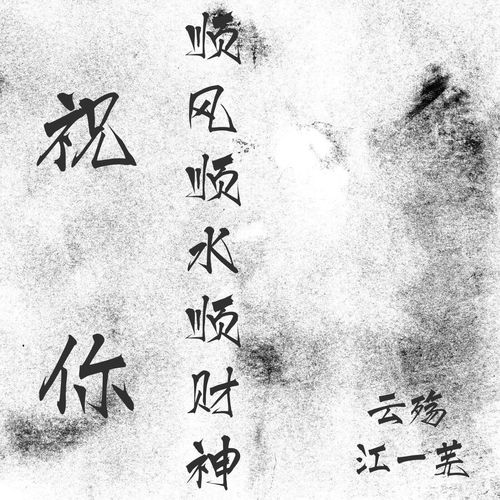 祝你
顺风顺水顺财神
云殇
江一芜